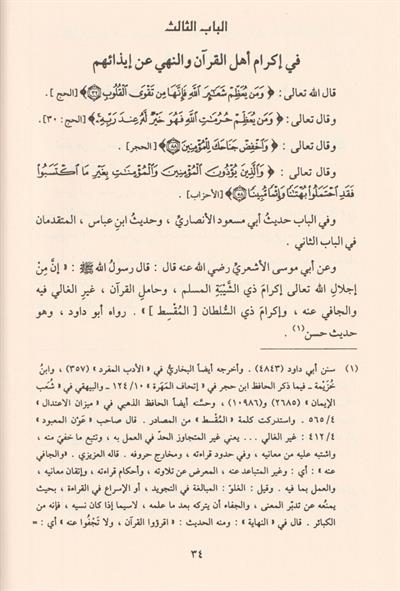 الباب الثالث
في إكرام أهل القرآن والنهي عن إيذائهم
قال الله تعالى : ﴿ وَمَن يُعَظِّمْ شَعَٰٓئِرَ ٱللَّهِ فَإِنَّهَا مِن تَقْوَى ٱلْقُلُوبِ ﴿٣٢﴾ ﴾ [الحج] .
وقال تعالى : ﴿ وَمَن يُعَظِّمْ حُرُمَٰتِ ٱللَّهِ فَهُوَ خَيْرٌ لَّهُۥ عِندَ رَبِّهِۦ ﴾ [الحج : ٣٠] .
وقال تعالى : ﴿ وَٱخْفِضْ جَنَاحَكَ لِلْمُؤْمِنِينَ ﴿٨٨﴾ ﴾ [الحجر] .
وقال تعالى : ﴿ وَٱلَّذِينَ يُؤْذُونَ ٱلْمُؤْمِنِينَ وَٱلْمُؤْمِنَٰتِ بِغَيْرِ مَا ٱكْتَسَبُوا۟
فَقَدِ ٱحْتَمَلُوا۟ بُهْتَٰنًا وَإِثْمًا مُّبِينًا ﴿٥٨﴾ ﴾ [الأحزاب] .
وفي الباب حديثُ أبي مسعود الأنصاريِّ ، وحديثُ ابنِ عباس ، المتقدمان
في الباب الثاني .
وعن أبي موسى الأشعريِّ رضي الله عنه قال : قال رسول الله ﷺ : « إنَّ مِنْ
إجلالِ الله تعالى إكرامَ ذي الشَّيْبَةِ المسلم ، وحاملِ القرآن ، غيرِ الغالي فيه
والجافي عنه ، وإكرامَ ذي السُّلطان [ المُقْسِط ] » . رواه أبو داود ، وهو
حديث حسن(١) .
(١) سنن أبي داود (٤٨٤٣) . وأخرجه أيضاً البخاريُّ في «الأدب المفرد» (٣٥٧) ، وابنُ
خُزَيْمة ـ فيما ذكر الحافظ ابن حجر في «إتحاف المَهَرة» ١٢٤/١٠ ـ والبيهقي في «شُعَب
الإيمان» (٢٦٨٥) و(١٠٩٨٦) ، وحسَّنه أيضاً الحافظ الذهبي في «ميزان الاعتدال»
٥٦٥/٤ . واستدركت كلمة «المُقْسِط» من المصادر . قال صاحب «عَوْن المعبود»
٤١٢/٤ : غير الغالي ... يعني غير المتجاوز الحدّ في العمل به ، وتتبع ما خفيَ منه ،
واشتبه عليه من معانيه ، وفي حدود قراءته ، ومخارج حروفه . قاله العزيزي . «والجافي
عنه» : أي : وغير المتباعد عنه ، المعرض عن تلاوته ، وأحكام قراءته ، وإتقان معانيه ،
والعمل بما فيه . وقيل : الغلوّ : المبالغة في التجويد ، أو الإسراع في القراءة ، بحيث
يمنعُه عن تدبّر المعنى ، والجفاء أن يتركه بعد ما علمه ، لاسيما إذا كان نسيه ، فإنه من
الكبائر . قال في «النهاية» : ومنه الحديث : «اقرؤوا القرآن ، ولا تَجْفُوا عنه» أي : =
٣٤